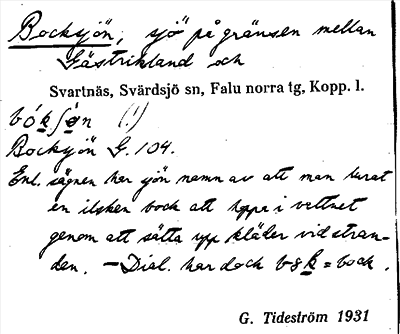 Bocksjön, sjö på gränsen mellan
Gästrikland och
Svartnäs, Svärdsjö sn, Falu norra tg, Kopp. l.
bók∫ǿn (!)
Bocksjön G. 104.
Enl. sägnen har sjön namn av att man lurat
en ilsken bock att hoppa i vattnet
genom att sätta upp kläder vid stran-
den. – Dial. har dock bok = bock.
G. Tideström 1931